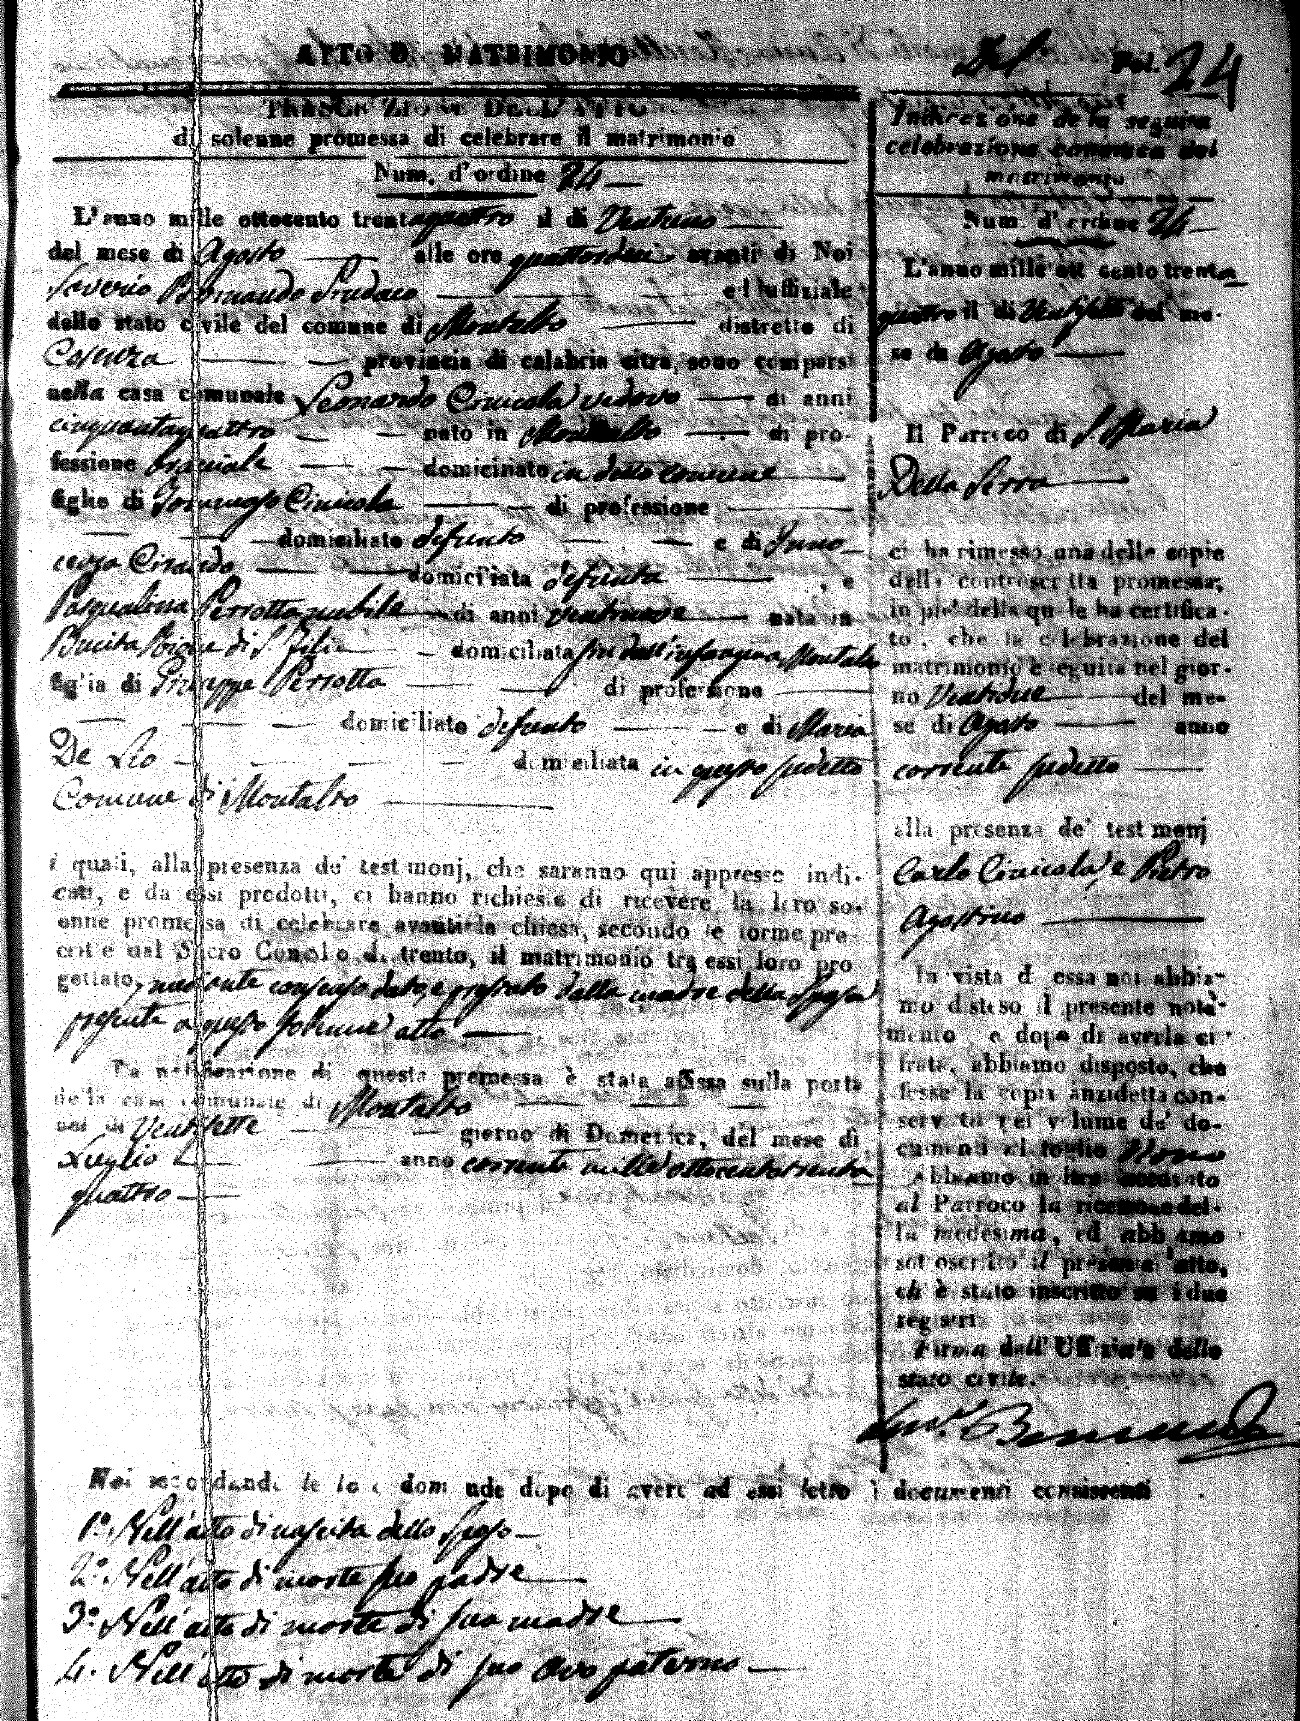 ATTO D MATRIMONIO
TRASCRIZIONE DELL'ATTO
di solenne promessa di celebrare il matrimonio
Num. d'ordine 24
L'anno mille ottocento trentaquattro il di Ventuno
del mese di Agosto alle ore quattordici avanti di Noi
Saverio Bernardo ed uffiziale
dello stato civile del comune di Montalto distretto di
Cosenza provincia di calabria citra, sono comparsi
nella casa comunale Leonardo Cinicola vedovo di anni
cinquantaquattro nato in Montalto di pro-
fessione bracciale domiciliato in detto comune
figlio di Tommaso Cinicola di professione
domiciliato defunto e di Inno
cenza domiciliata defunta , e
Pasqualina Perrotta nubile di anni ventinove nata in
Bucita di S. Fili domiciliata fin dall'infanzia Montalto
figlia di Giuseppe Perrotta di professione
domiciliato defunto e di Maria
De Lio domiciliata in questo sudetto
Comune di Montalto
i quali, alla presenza de' testimonj, che saranno qui appresso indi-
cati, e da essi prodotti, ci hanno richiesto di ricevere la loro so-
enne promessa di celebrare avanti la chiesa, secondo le forme pre-
critte dal Sacro Concilio di trento, il matrimonio tra essi loro pro
gettato, mediante consenso dato, e prestato dalla madre della Sposa
presente a questo solenne atto
La notificazione di questa promessa è stata affissa sulla porta
della casa comunale di Montalto
nel di Ventisette giorno di Domenica, del mese di
Luglio anno corrente mille ottocentotrenta
quattro
Noi secondando le loro domande dopo di avere ad essi letto i documenti consistenti
1.º Nell'atto di nascita dello sposo
2.º Nell'atto di morte suo padre
3.º Nell'atto di morte di sua madre
4. Nell'atto di morte di suo avo paterno
Del Fol. 24
Indicazione della seguita
celebrazione canonica del
matrimonio
Num. d'ordine 24
L'anno mille ottocento trenta
quattro il di Ventisette del me-
se di Agosto
Il Parroco di S. Maria
Della Serra
ci ha rimesso una delle copie
della controscritta promessa;
in piè della quale ha certifica-
to, che la celebrazione del
matrimonio è seguita nel gior-
no Ventidue del me-
se di Agosto anno
corrente sudetto
alla presenza de' testimonj
Carlo Cinicola, e Pietro
Agostino
In vista di essa noi abbia-
mo disteso il presente nota-
mento, e dopo di averla ci
frata, abbiamo disposto, che
fosse la copia anzidetta con-
servata nel volume de' do-
cumenti al foglio Nono
Abbiamo in fine accusato
al Parroco la ricezione del-
la medesima, ed abbiamo
sottoscritto il presente atto,
ch' è stato inscritto su i due
registri
Firma dell' Uffiziale dello
stato civile.